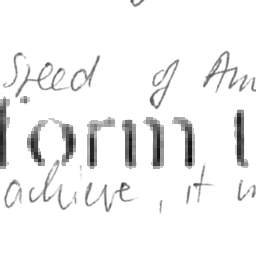 Speed of Am
form
achieve, it